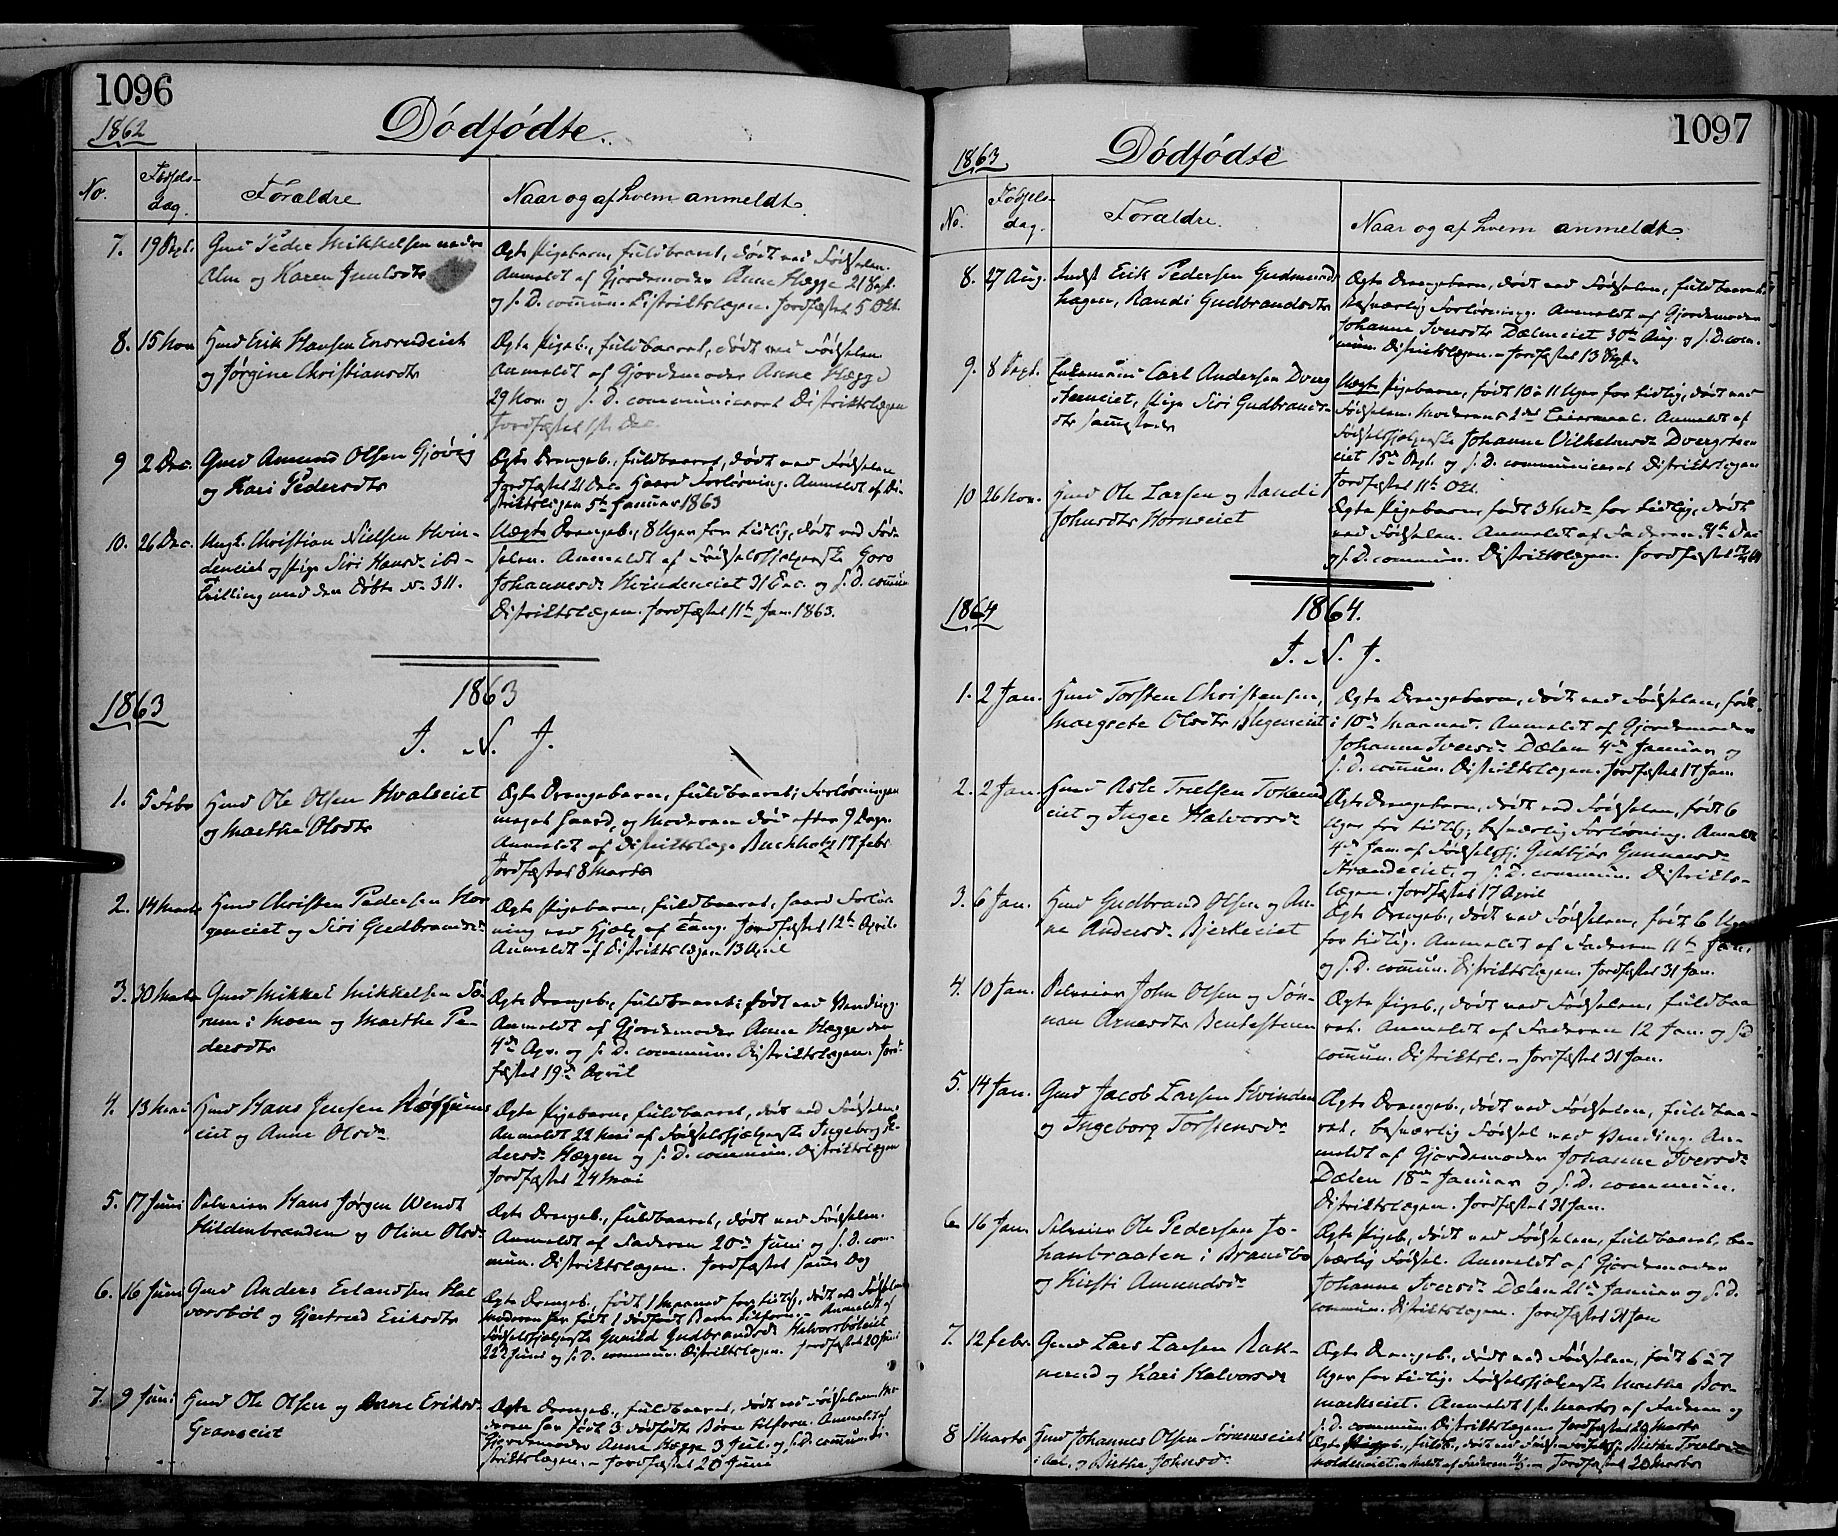 1096
1862
Dödfödte.
No.
Födsels-
dag.
Forældre
Naar og af hvem anmeldt.
7. 19 Sept. Gmd Peder Mikkelsen nedre
Alm og Karen Juulsdtr
Ægte Pigebarn, fuldbaaret, dödt ved Födselen.
Anmeldt af Gjordemoder Anne Hegge 21 Sept.
og s. D. commun. Distriktslægen. Jordfæstet 5 Oct.
8. 15 Nov Hmd Erik Hansen Ensrudeiet
og Jørgine Christiansdtr
Ægte Pigeb., fuldbaaret, dödt ved Födselen
Anmeldt af Gjordemoder Anne Hegge
29 Nov. og s. D. communiceret Distriktslægen
Jordfæstet 1ste Dec.
9 2 Dec. Gmd Amund Olsen Gjövig
og Kari Pedersdtr
Ægte Drengeb., fuldbaaret, dödt ved Födselen
Jordfæstet 21 Dec. Haard Forlösning. Anmeldt af Di-
striktslægen 5te Januar 1863
10. 26 Dec. Ungk. Christian Nielsen Hvin-
deneiet og Pige Siri Hansd. ibd-
Tvilling med den Döbte No. 311.
Uægte Drengeb., 8 Uger for tidlig, dödt ved Föd-
selen. Anmeldt af Födselshjælperske Goro
Johannesd. Hvindeneiet 31 Dec. og s. D. commun
Distriktslægen. Jordfæstet 11te Jan. 1863.
1863
1863
I. N. J.
1. 5 Febr Hmd Ole Olsen Hvalseiet
og Marthe Olsdtr
Ægte Drengebarn, fuldbaaret; Forlösningen
meget haard, og Moderen död efter 9 Dage.
Anmeldt af Distriktslæge Buchholz 17 Febr
Jordfæstet 8 Marts
2. 14 Marts Hmd Christen Pedersen Hor
geneiet og Siri Gudbrandsd.
Ægte Pigebarn, fuldbaaret, haard Forlös-
ning ved Hjælp af Tang. Jordfæstet 12te April.
Anmeldt af Distriktslægen 13 April
3. 30 Marts Gmd Mikkel Mikkelsen Sö-
rum i Moen og Marthe Pe-
dersdtr
Ægte Drengeb., fuldbaaret; födt ved Vending.
Anmeldt af Gjordemoder Anne Hegge den
4de Apr. og s. D. commun. Distriktslægen. Jord-
fæstet 19de April
4. 13 Mai Hmd Hans Jensen Rössjums
eiet og Anne Olsd.
Ægte Pigebarn, fuldbaaret, död ved Födselen.
Anmeldt 22 Mai af Födselshjælperske Ingeborg Pe-
dersd. Heggen og s. D. commun. Distriktslægen
Jordfæstet 24 Mai
5. 17 Juni Selveier Hans Jørgen Wendt
Hildenbranden og Oline Olsd.
Ægte Drengeb., fuldbaaret, dödt ved Födselen.
Anmeldt af Faderen 20de Juni og s. D. com-
mun. Distriktslægen. Jordfæstet samme Dag
6. 16 Juni Gmd Anders Erlandsen Hal
vorsböl og Gjertrud Eriksdtr
Ægte Drengeb., födt 1 Maaned for tidlig, dödt ved Födselen
Moderen har födt 1 dödfödt Barn tilforn. Anmeldt af
Födselshjælperske Gunild Gudbrandsd. Halvorsböleiet
22de Juni og s. D. commun. Distriktslægen. Jordfæstet 20 Juni
7. 9 Juni Hmd Ole Olsen og Anne Eriksd.
Granseiet
Ægte Drengeb., fuldbaaret, dödt ved Födselen. Mo-
deren har födt 3 dödfödte Börn tilforn. Anmeldt af
Gjordemoder Anne Hegge 3 Juli og s. D. commun. Di-
striktslægen. – Jordfæstet 20 Juni
1097
1863
Dödfödte
No.
Födsels-
dag.
Forældre.
Naar og af hvem anmeldt.
8. 27 Aug. Indst Erik Pedersen Gudmunds
hagen, Randi Gudbrandsdtr
Ægte Drengebarn, dödt ved Födselen, fuldbaaret
Besværlig Forlösning. Anmeldt af Gjordemoder
Johanne Iversdtr Dæleneiet 30te Aug. og s. D. com-
mun. Distriktslægen. – Jordfæstet 13 Sept.
9. 8 Sept. Enkemand Carl Andersen Dverg
steneiet, Pige Siri Gudbrands-
dtr sammesteds
Uægte Pigebarn, födt 10 à 11 Uger for tidlig, dödt ved
Födselen. Moderens 2det Leiermaal. Anmeldt af
Födselshjælperske Johanne Vilhelmsd. Dvergsten
eiet 15de Sept. og s. D. communiceret Distriktslægen
Jordfæstet 11te Oct.
10 26 Nov. Hmd Ole Larsen og Randi
Johnsdtr Hornseiet
Ægte Pigebarn, födt 3 Mdr for tidlig, dödt
ved Födselen. Anmeldt af Faderen 4de Dec
og s. D. commun. Distriktslægen. Jordfæstet
1864
1864.
I. N. J.
1. 2 Jan. Hmd Torsten Christensen,
Margrete Olsdtr Hegeneiet
Ægte Drengebarn, dödt ved Födselen, född
i 10de Maaned. Anmeldt af Gjordemoder
Johanne Iversd. Dælen 4de Januar og
s. D. commun. Distriktslægen. Jordfæstet 17 Jan.
2. 2 Jan. Hmd Asle Truelsen Tokerud
eiet og Inger Halvorsd.
Ægte Drengebarn, dödt ved Födselen, födt 6
Uger for tidlig; besværlig Forlösning. Anmeldt
4de Jan. af Födselshj. Gudbjör Gunnersd.
Strandeiet, og s. D. commun. Distrikts-
lægen. Jordfæstet 17 April
3. 6 Jan. Hmd Gudbrand Olsen og An-
ne Andersd. Bjerkeeiet
Ægte Drengeb., dödt ved Födselen, födt 6 Uger
for tidlig. Anmeldt af Faderen 11te Jan.
og s. D. commun. Distriktslægen. Jordfæstet 31 Jan.
4. 10 Jan. Selveier John Olsen og Sön-
nau Arnesdtr Bentestuen
Ægte Pigeb., dödt ved Födselen, fuldbaa
ret. Anmeldt af Faderen 12 Jan. og s. D
commun. Distriktsl. – Jordfæstet 31 Jan.
5. 14 Jan. Gmd Jacob Larsen Hvinden
og Ingeborg Torstensd.
Ægte Drengeb., dödt ved Födselen, fuldbaa-
ret, besværlig Födsel ved Vending. An-
meldt af Gjordemoder Johanne Iversd.
Dælen 18de Januar og s. D. commun.
Distriktslægen. Jordfæstet 31 Jan.
6. 16 Jan. Selveier Ole Pedersen Jo-
hansbraaten i Brandbo
og Kirsti Amundsd.
Ægte Pigeb., dödt ved Födselen, fuldbaaret, be-
sværlig Födsel. Anmeldt af Gjordemoder
Johanne Iversd. Dælen 21de Januar og s. D.
commun. Distriktslægen. Jordfæstet 31 Jan
7. 12 Febr. Gmd Lars Larsen Rak-
nerud og Kari Halvorsd.
Ægte Drengeb., dödt ved Födselen, födt 6 à 7
Uger for tidlig. Födselshjælperske Marthe Bor-
markeiet. Anmeldt 1ste Marts af Faderen og
s. D. commun. Distriktslægen Jordfæstet 29 Marts
8 1 Marts Hmd Johannes Olsen Sörumseiet
i Aal, og Birthe Johnsd.
Ægte Pigeb., fuldb., dödt ved Födselen. Födselshj. Birthe Truelsd.
Jordfæstet 20 Marts